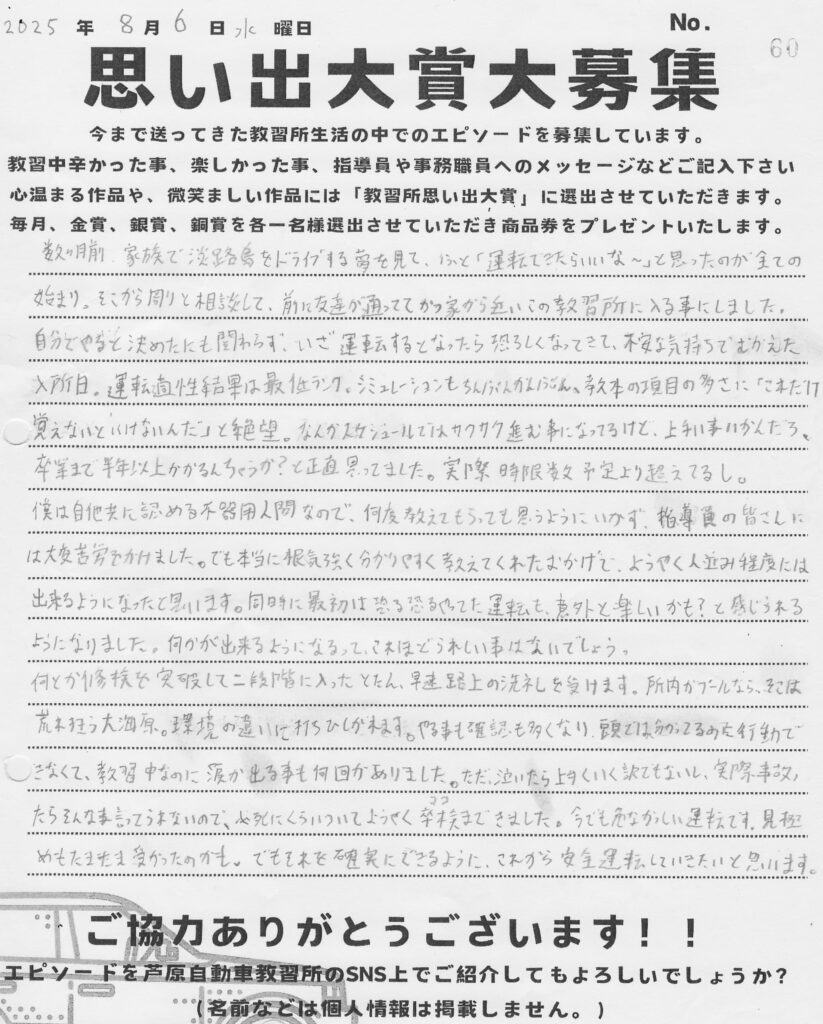 2025 年 8 月 6 日 水 曜日
No.
60
思い出大賞大募集
今まで送ってきた教習所生活の中でのエピソードを募集しています。
教習中辛かった事、楽しかった事、指導員や事務職員へのメッセージなどご記入下さい
心温まる作品や、微笑ましい作品には「教習所思い出大賞」に選出させていただきます。
毎月、金賞、銀賞、銅賞を各一名様選出させていただき商品券をプレゼントいたします。
数ヶ月前、家族で淡路島をドライブする夢を見て、ふと「運転できたらいいな〜」と思ったのが全ての
始まり。そこから周りと相談して、前に友達が通っててかつ家から近いこの教習所に入る事にしました。
自分でやると決めたにも関わらず、いざ運転するとなったら恐ろしくなってきて、不安な気持ちでむかえた
入所日。運転適性結果は最低ランク。シミュレーションもちんぷんかんぷん、教本の項目の多さに「これだけ
覚えないといけないんだ」と絶望。なんかスケジュールではサクサク進む事になってるけど、上手い事いかんだろ、
卒業まで半年以上かかるんちゃうか?と正直思ってました。実際時限数予定より超えてるし。
僕は自他共に認める不器用人間なので、何度教えてもらっても思うようにいかず、指導員の皆さんに
は大変苦労をかけました。でも本当に根気強く分かりやすく教えてくれたおかげで、ようやく人並み程度には
出来るようになったと思います。同時に最初は恐る恐るやってた運転も、意外と楽しいかも?と感じられる
ようになりました。何かが出来るようになるって、これほどうれしい事はないでしょう。
何とか修検を突破して二段階に入ったとたん、早速路上の洗礼を受けます。所内がプールなら、そこは
荒れ狂う大海原。環境の違いに打ちひしがれます。やる事も確認も多くなり、頭では分かってるのに行動で
きなくて、教習中なのに涙が出る事も何回かありました。ただ、泣いたら上手くいく訳でもないし、実際事故っ
たらそんな事言ってられないので、必死にくらいついてようやく卒検まできました。今でも危なっかしい運転です。見極
ココ
めもたまたま受かったのかも。でもそれを確実にできるように、これから安全運転していきたいと思います。
ご協力ありがとうございます!!
エピソードを芦原自動車教習所のSNS上でご紹介してもよろしいでしょうか?
(名前などは個人情報は掲載しません。)